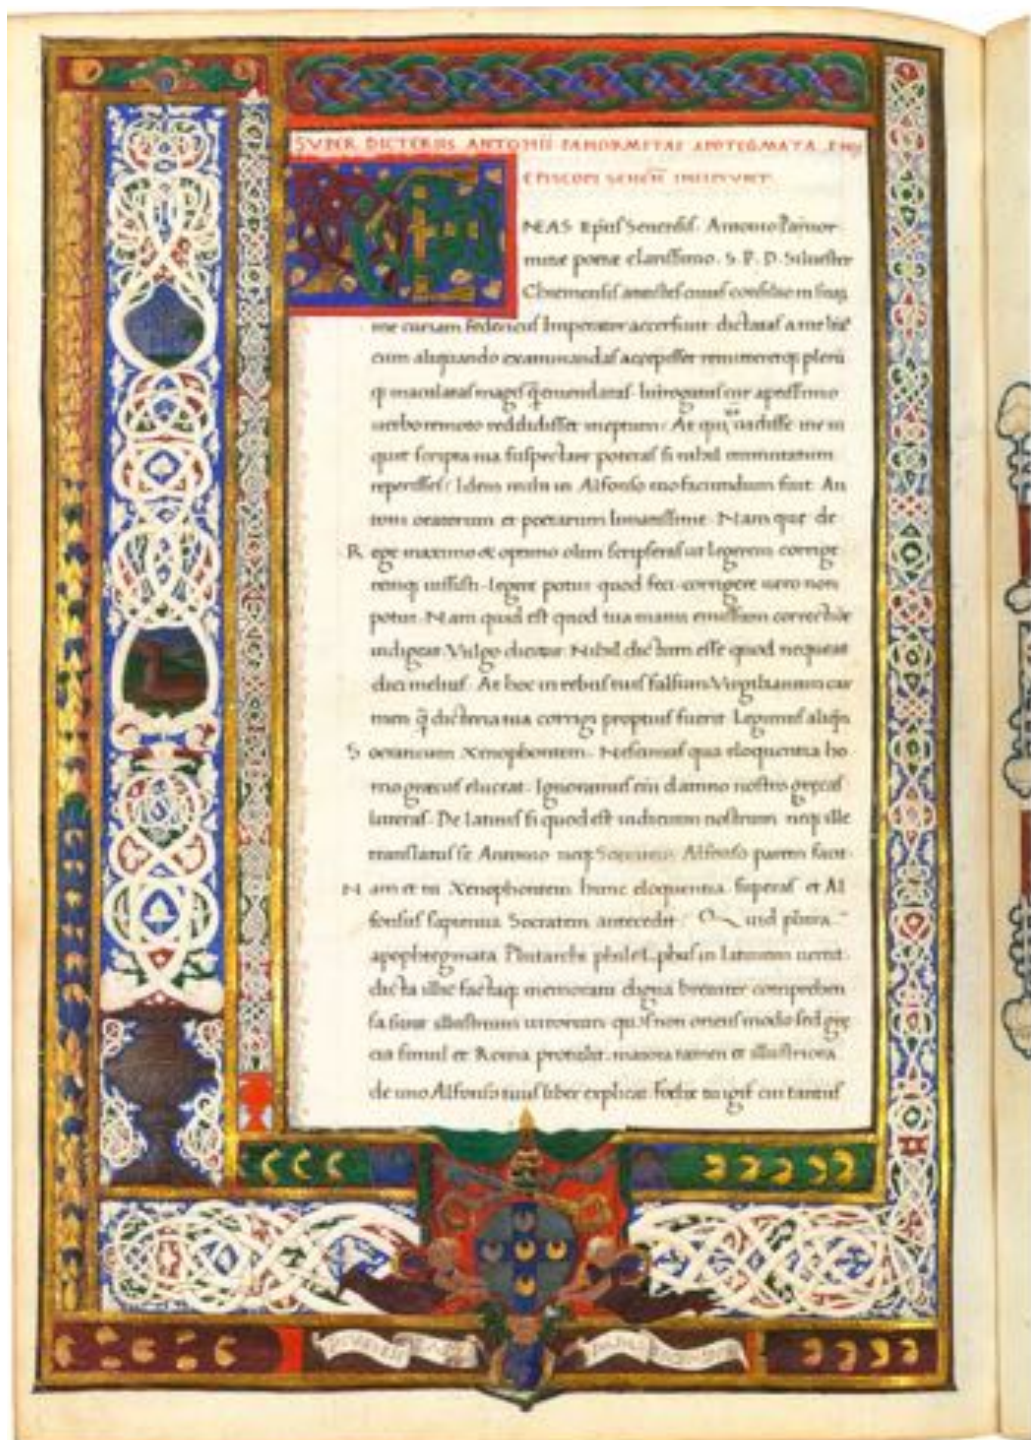 SVPER DICTERIIS ANTONII PANORMITAE APOTEGMATA ENEE
EPISCOPI SENEN INCIPIVNT
NEAS Epiſ Senenſiſ. Antonio Panor
mitæ poetæ clariſſimo. S. P. D. Silueſter
Chiemenſiſ antiſteſ cuiuſ conſilio
me curiam Federicuſ Imperator dictataſ a me
cum aliquando examinandaſ accepiſſet remitteretq; plerũ
q; maculataſ magiſ q̃ emendataſ. Interroganſ cur aptiſſimo
uerbo remoto reddidiſſet ineptum. At qui
quit ſcripta tua ſuſpectare poteraſ ſi nihil immutatum
reperiſſeſ. Idem mihi in Alfonſo tuo faciundum fuit. An
toni oratorum et poetarum limatiſſime. Nam que de
Rege maximo & optimo olim ſcripſeraſ ut legerem corrige
remq; iuſſiſti. Legere potui quod feci. corrigere uero non
potui. Nam quid eſt quod tua manu emiſſum
indigeat. Vulgo dicitur. Nihil dictum eſſe quod nequeat
dici meliuſ. At hoc in rebuſ tuiſ falſum. Virgilianum car
men q̃ dicteria tua corrigi
Socraticum Xenophontem. Neſcimuſ qua eloquentia ho
mo græcuſ eluceat. Ignoramuſ eni damno noſtro græcaſ
litteraſ. De Latiniſ ſi quod eſt iudicium noſtrum neq; ille
tranſlatuſ ſe Antonio neq; Alfonſo parem facit.
Nam et tu Xenophontem hunc eloquentia ſuperaſ et Al
fonſuſ ſapientia Socratem antecedit. Quid plura
apophtegmata Plutarchi philoſophuſ in latinum uertit.
dicta illic factaq; memoratu digna breuiter comprehen
ſa ſunt illuſtrium uirorum quoſ non orienſ modo ſed gre
cia ſimul et Roma protulit. maiora tamen et illuſtriora
de uno Alfonſo tuuſ liber explicat. Felix cui tantuſ